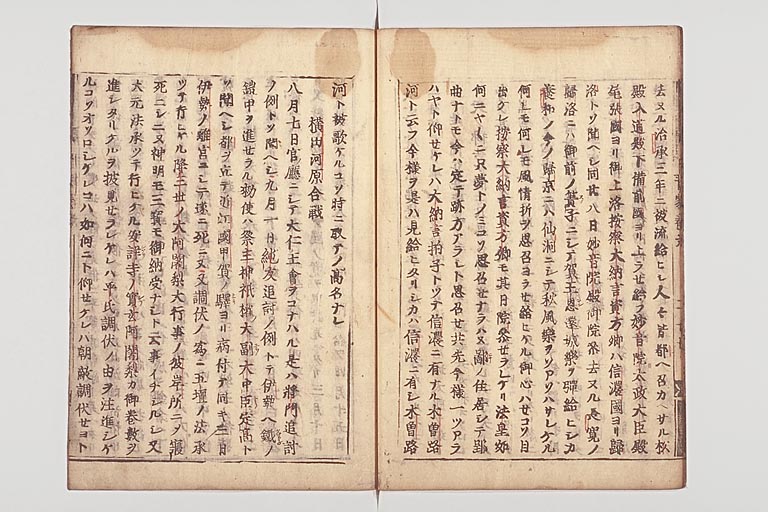 去ヌル治承三年ニ被流給ヒシ人々皆都ヘ召カヘサル松
殿入道殿下備前國ヨリ上ラせ給フ妙音院太政大臣殿
尾張國ヨリ御上洛按察大納言資方卿ハ信濃國ヨリ歸
洛トソ聞ヘシ同廿八日妙音院殿御院参去ヌル長寛ノ
歸洛ニハ御前ノ簀子ニシテ賀王恩還城樂ヲ彈給ヒシカ
養和ノ今ノ歸京ニハ仙洞ニシテ秋風樂ヲソアソハサレケル
何レモ何レモ風情折ヲ思召ヨラせ給ヒケル御心ハせコソ目
出ケレ按察大納言資方卿モ其日院参せラレケリ法皇如
何ニヤイカニ只夢トノミコソ思召せナラハヌ鄙ノ住居シテ郢
曲ナトモ今ハ定テ跡方アラシト思召せ共先今樣一ツアラ
ハヤト仰せケレハ大納言拍子トツテ信濃ニ有ナル木曽路
河ト云フ今樣ヲ是ハ見給ヒタリシカハ信濃ニ有シ木曽路
河ト被歌ケルコソ特ニ取テノ高名ナレ
横田河原合戦
八月七日官廳ニシテ大仁王會ヲコナハル是ハ將門追討
ノ例トソ聞ヘシ九月一日純友追討ノ例トテ伊勢ヘ鐵ノ
鎧甲ヲ進せラル勅使ハ祭主神祇權大副大中臣定高ト
ソ聞ヘシ都ヲ立テ近江國甲賀ノ驛ヨリ病付テ同キ三日
伊勢ノ離宮ニシテ球ニ死ニヌ又調伏ノ爲ニ五壇ノ法承
ツテ行ヒケル降三世ノ大阿闍梨大行事ノ彼岸所ニソ寢
死ニシニヌ神明モ三寳モ御納受ナシト云事イチシルシ又
大元法承ツテ行ヒケル安祥寺ノ實玄阿闍梨カ御巻數ヲ
進シタリケルヲ披見せラレケレハ平氏調伏ノ由ヲ注進シケ
ルコソオソロシケレコハ如何ニト仰せケレハ朝敵調伏せヨト